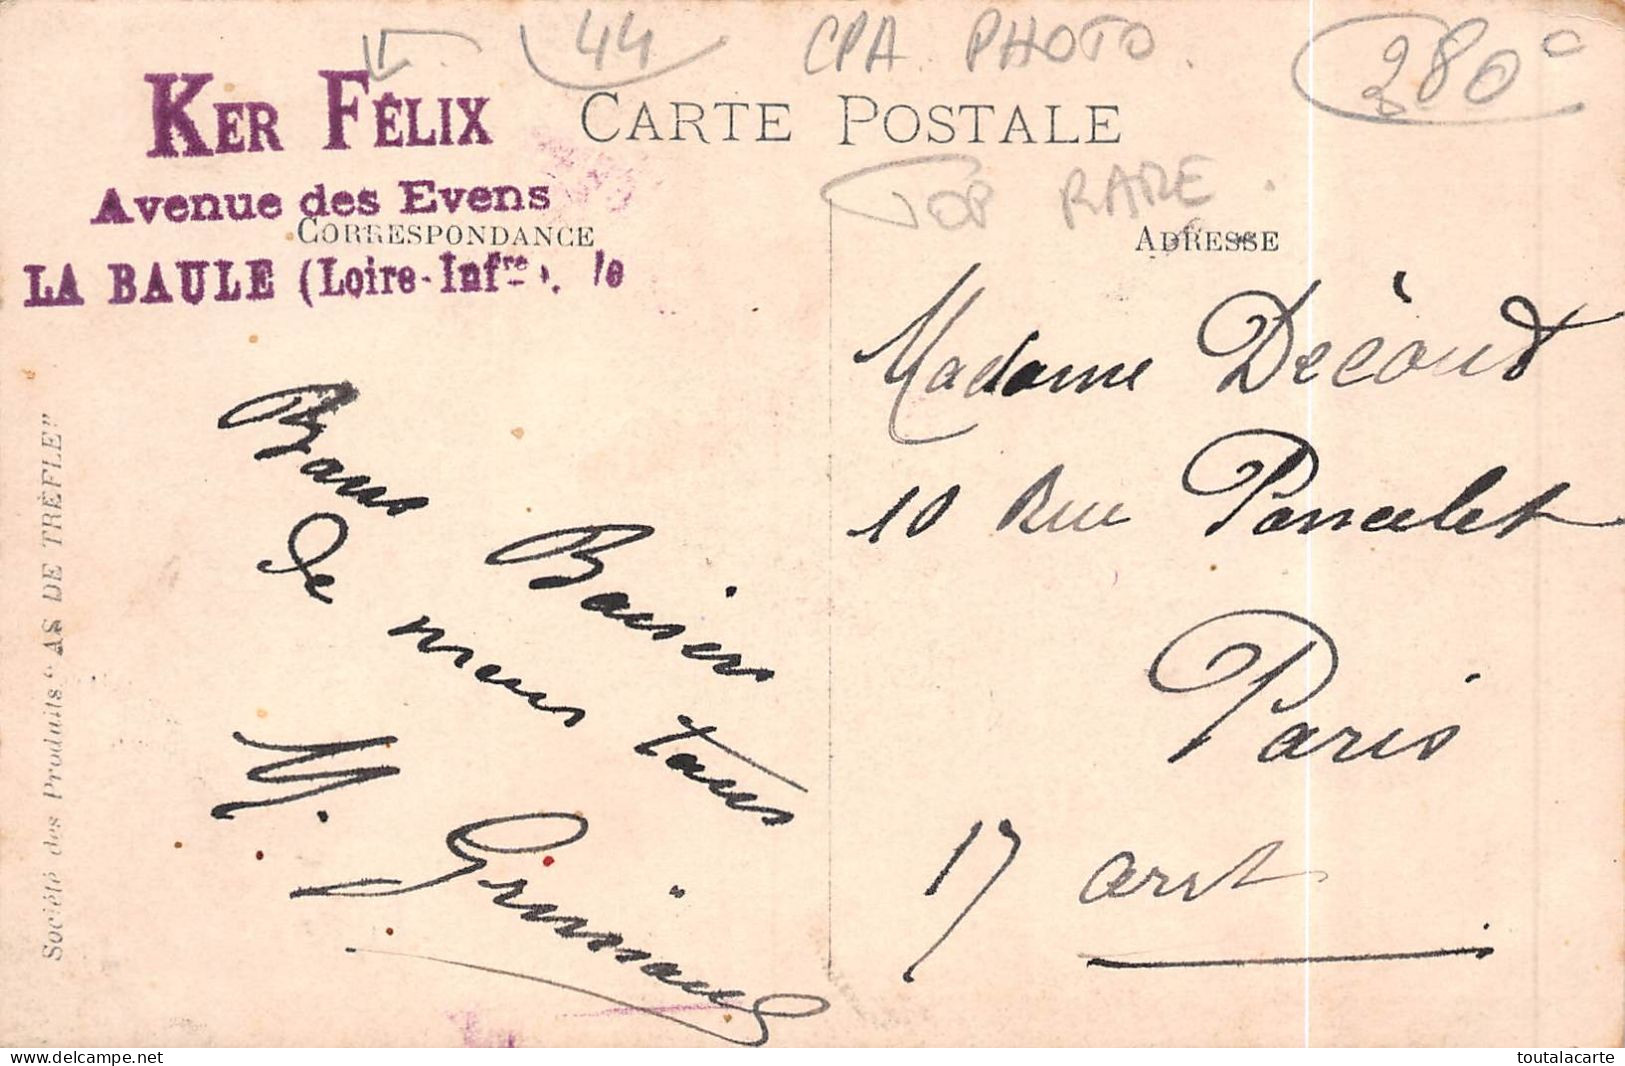 44 CPA PHOTO. 280
KER FÉLIX
CARTE POSTALE
TOP RARE.
Avenue des Evens
CORRESPONDANCE
ADRESSE
LA BAULE (Loire-Infre). le
Société des Produits "AS DE TRÈFLE"
Bons Baisers
de nous tous
M. Grimaud
Madame Décout
10 Rue Poncelet
Paris
17 arrt
delcampe.net
toutalacarte